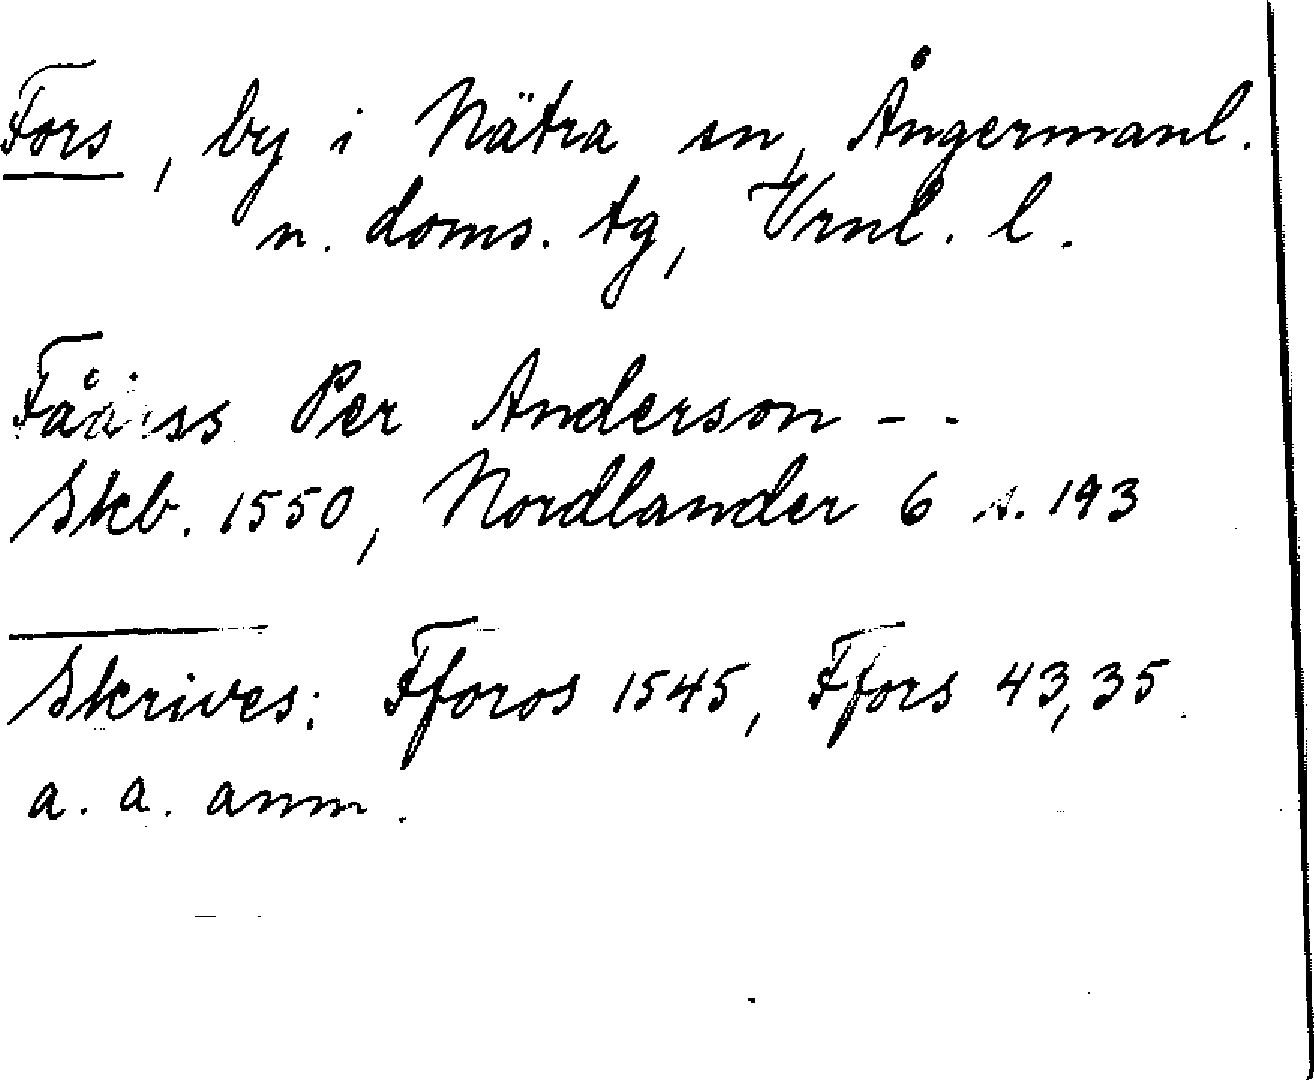 Fors, by i Nätra sn, Ångermanl.
n. doms. tg, Vrnl. l.
Per Anderson - -
Skb. 1550, Nordlander 6 s. 193
Skrives: Fforos 1545, Ffors 43, 35
a. a. anm.